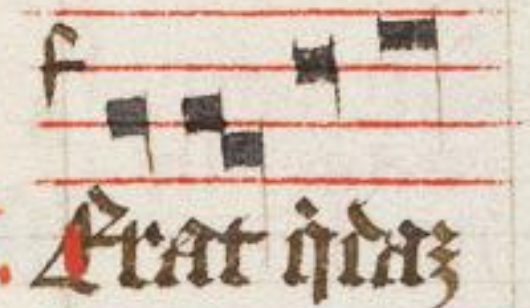 Erat q̇daʒ